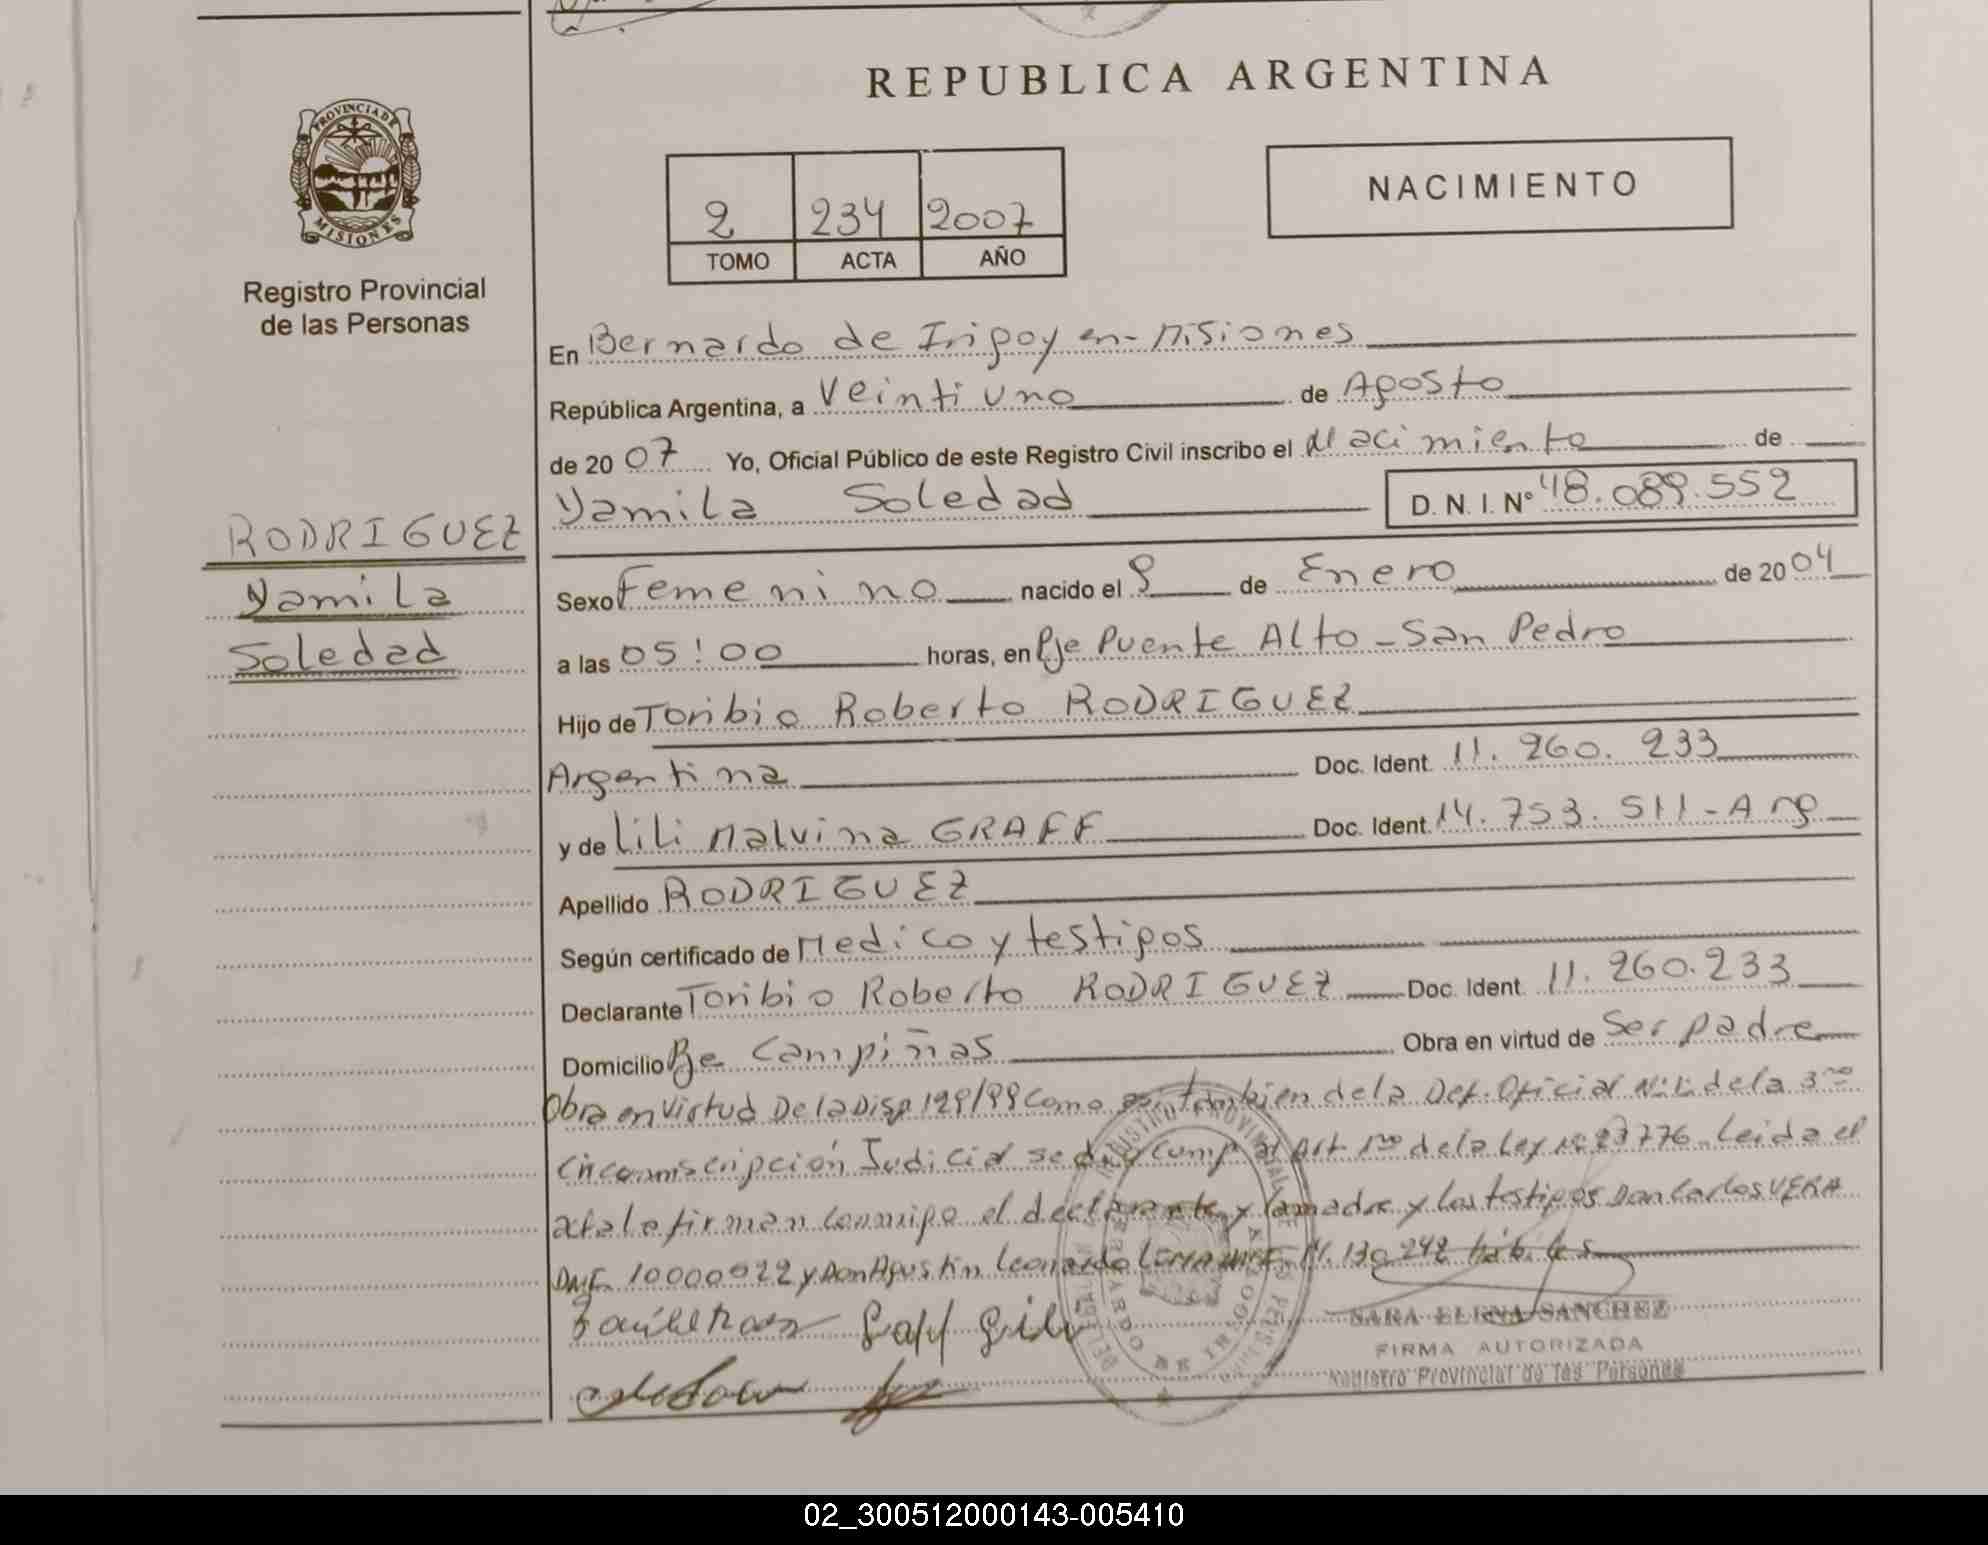 REPUBLICA ARGENTINA
PROVINCIA DE
MISIONES
Registro Provincial
de las Personas
2 234 2007
TOMO ACTA AÑO
NACIMIENTO
En Bernardo de Irigoyen - Misiones
República Argentina, a Veintiuno de Agosto
de 20 07 Yo, Oficial Público de este Registro Civil inscribo el Nacimiento de
Yamila Soledad D. N. I. N° 48.089.552
RODRIGUEZ
Yamila
Soledad
Sexo Femenino nacido el 9 de Enero de 20 04
a las 05:00 horas, en Pje Puente Alto - San Pedro
Hijo de Toribio Roberto RODRIGUEZ
Argentina Doc. Ident. 11.260.233
y de Lili Malvina GRAFF Doc. Ident. 14.753.511 - Arg
Apellido RODRIGUEZ
Según certificado de Medico y testigos
Declarante Toribio Roberto RODRIGUEZ Doc. Ident. 11.260.233
Domicilio Pje Campiñas Obra en virtud de Ser padre
Obra en virtud De la Disp 129/99 Como asi tambien de la Def. Oficial N: 1 de la 3ra
Circunscripción Judicial se da cump al Art 1ro de la Ley Nº 23776. Leida el
acta le firman conmigo el declarante y la madre y los testigos Don Carlos VERA
DNI. 10000022 y Don Agustin Leonardo hábiles
SARA ELENA SANCHEZ
FIRMA AUTORIZADA
Registro Provincial de las Personas
02_300512000143-005410